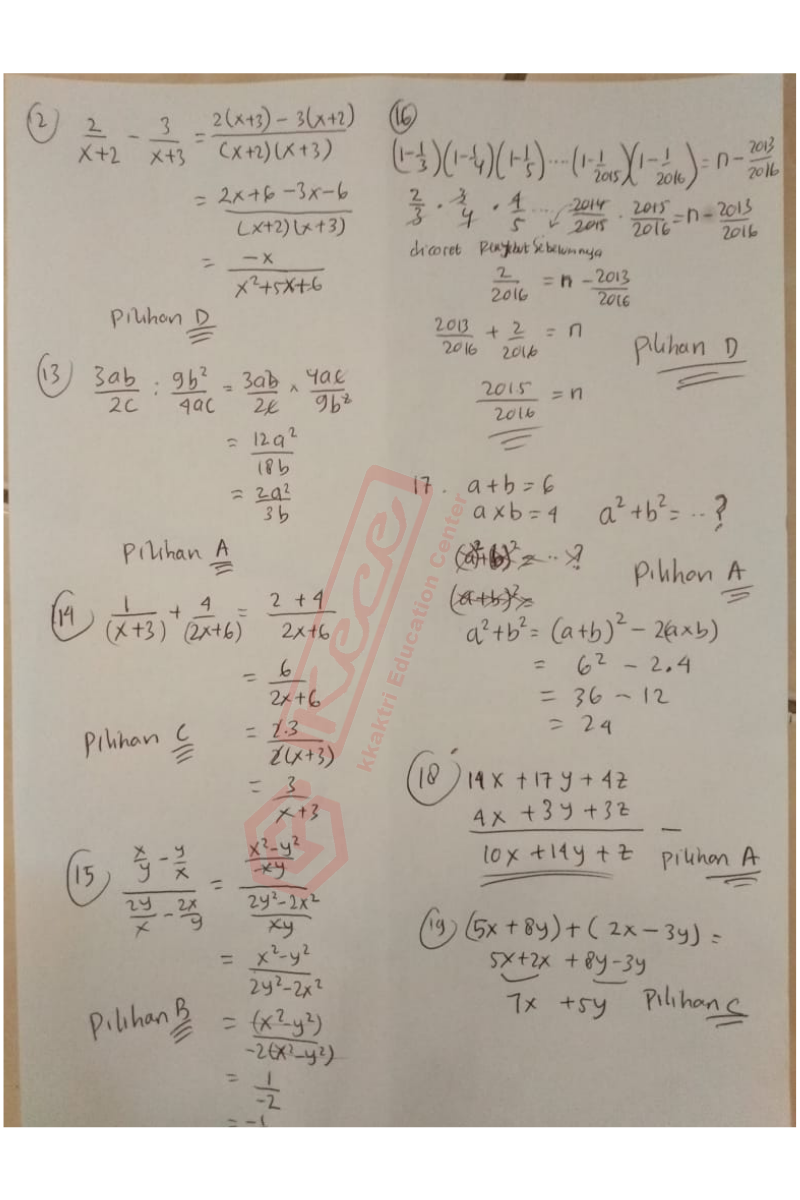 (12) 2/(x+2) - 3/(x+3) = (2(x+3) - 3(x+2))/((x+2)(x+3))
= (2x+6-3x-6)/((x+2)(x+3))
= -x/(x²+5x+6)
Pilihan D
(13) 3ab/2c : 9b²/4ac = 3ab/2c × 4ac/9b²
= 12a²/18b
= 2a²/3b
Pilihan A
(14) 1/(x+3) + 4/(2x+6) = (2+4)/(2x+6)
= 6/(2x+6)
Pilihan C = 2.3/2(x+3)
= 3/(x+3)
(15) (x/y - y/x)/(2y/x - 2x/y) = ((x²-y²)/xy)/((2y²-2x²)/xy)
= (x²-y²)/(2y²-2x²)
Pilihan B = (x²-y²)/-2(x²-y²)
= 1/-2
= -1
(16)
(1-1/3)(1-1/4)(1-1/5)....(1-1/2015)(1-1/2016) = n - 2013/2016
2/3 . 3/4 . 4/5 ... 2014/2015 . 2015/2016 = n - 2013/2016
dicoret Penyebut Sebelumnya
2/2016 = n - 2013/2016
2013/2016 + 2/2016 = n
Pilihan D
2015/2016 = n
17. a+b=6
a×b=4 a²+b²= ..?
Pilihan A
a²+b² = (a+b)² - 2(a×b)
= 6² - 2.4
= 36 - 12
= 24
(18) 14x + 17y + 4z
4x + 3y + 3z
10x + 14y + z Pilihan A
(19) (5x + 8y) + (2x - 3y) =
5x+2x + 8y-3y
7x + 5y Pilihan C
kkece
kkaktri Education Center